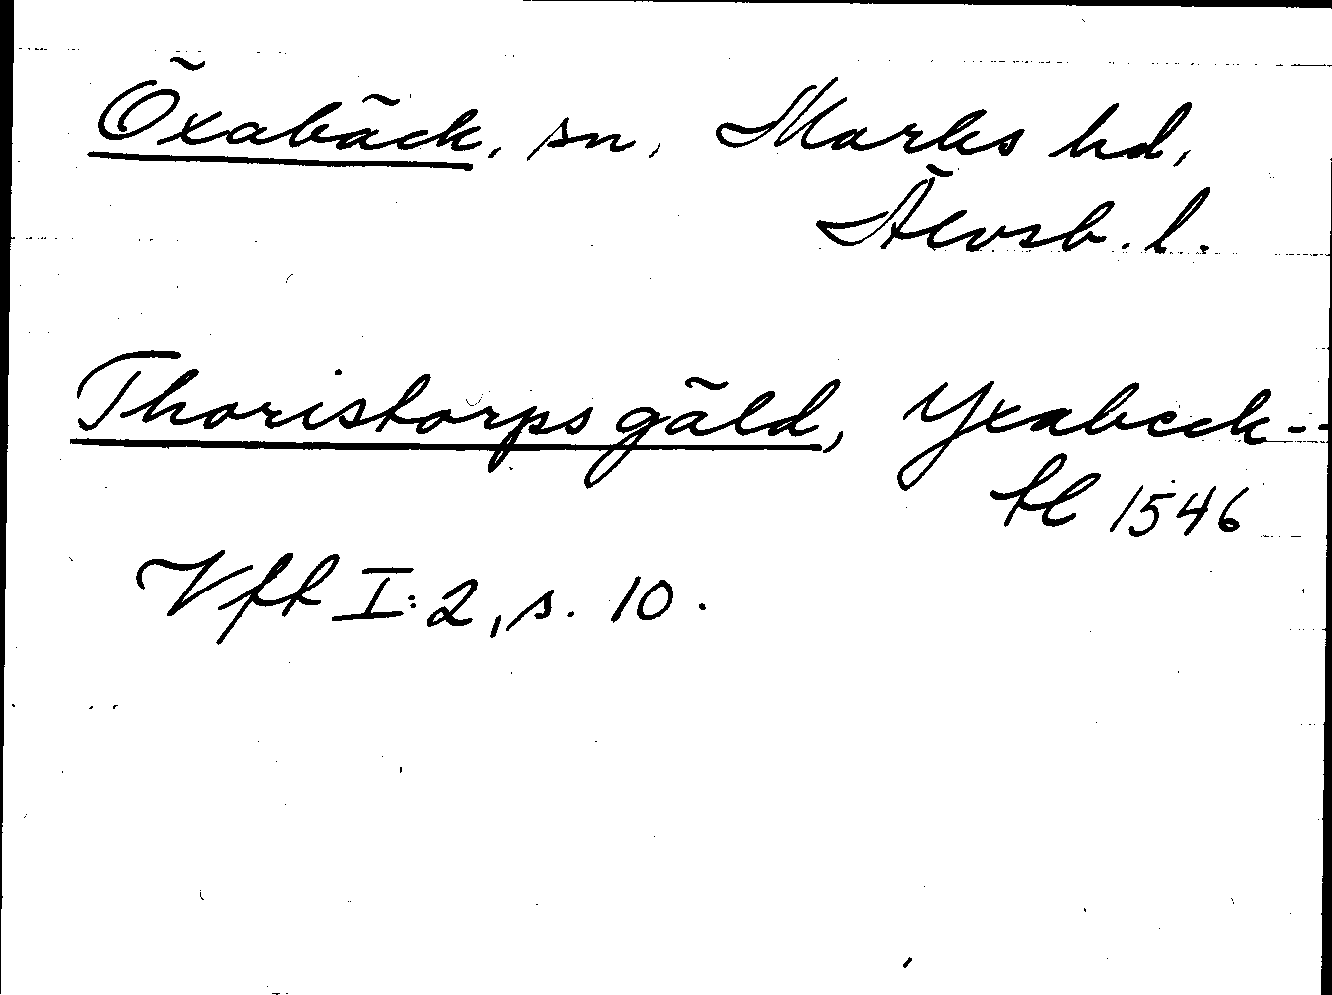 Öxabäck, sn, Marks hd,
Älvsb. l.
Thoristorps gäld, Yxabeck--
tl 1546
Vff I:2, s. 10.